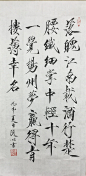 落魄江南載酒行楚
腰纖細掌中輕十年
一覺揚州夢贏得青
樓薄幸名